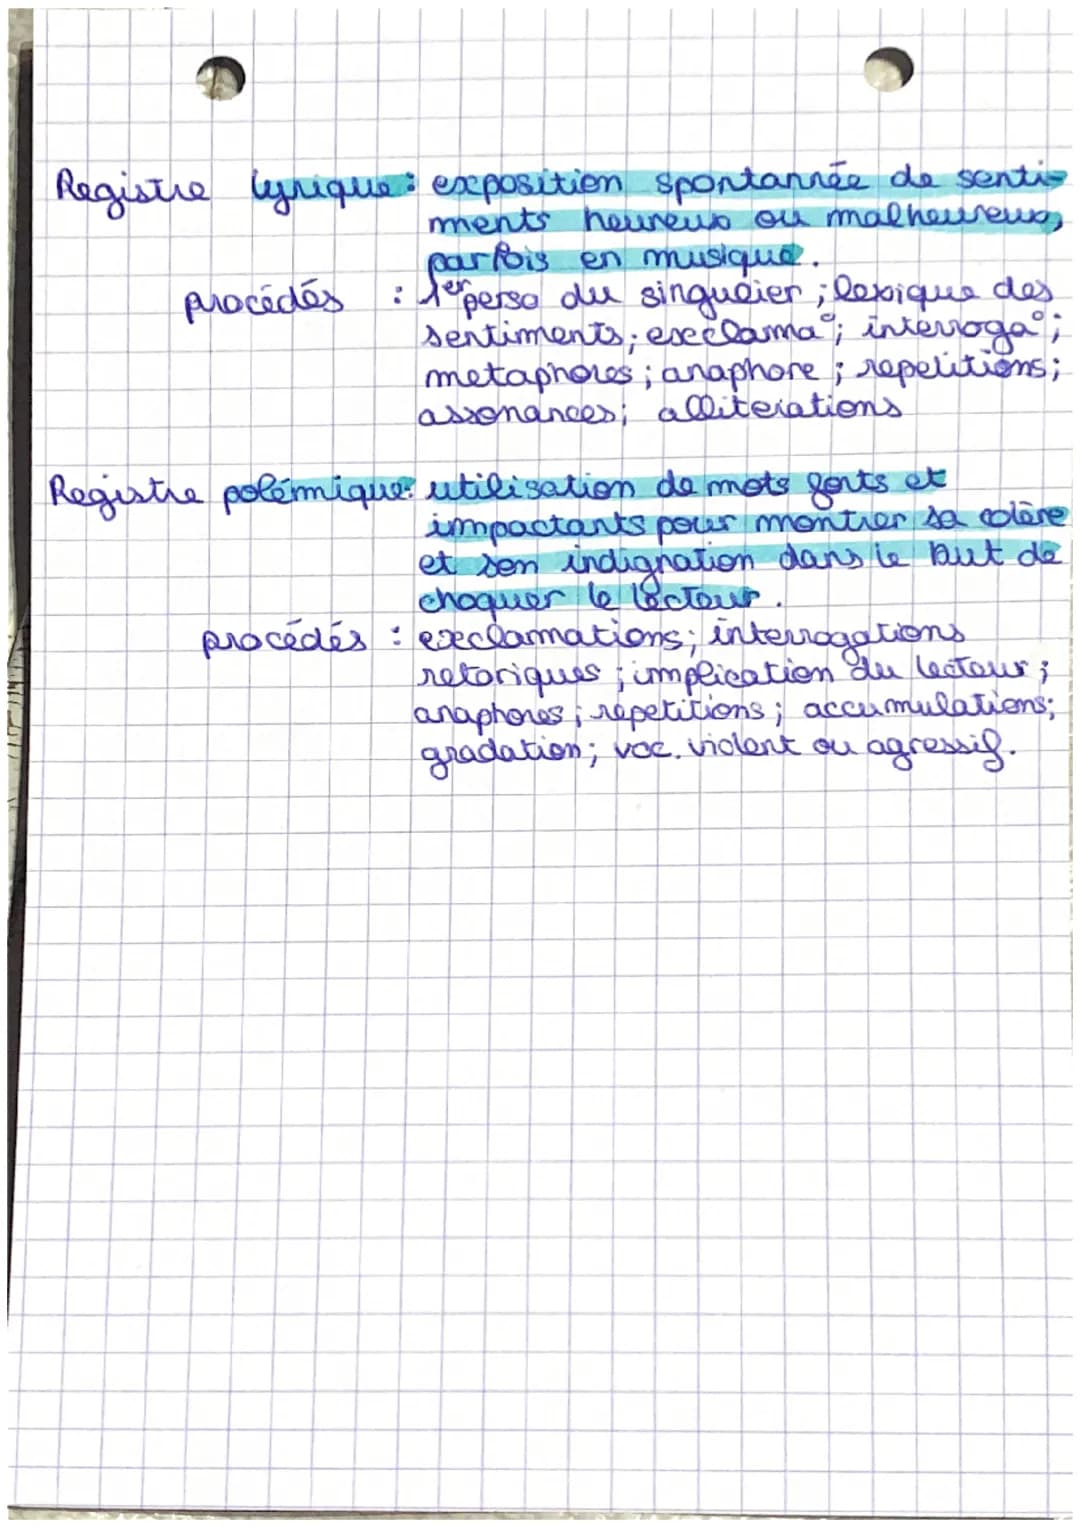 Registre lyrique : exposition spontannée de senti-
ments heureux ou malheureux,
parfois en musique.
procédés : 1er perso du singulier ; lexique des
sentiments ; exclama° ; interroga° ;
metaphores ; anaphore ; repetitions ;
assonances ; alliterations
Registre polémique : utilisation de mots forts et
impactants pour montrer sa colère
et son indignation dans le but de
choquer le lecteur.
procédés : exclamations ; interrogations
retoriques ; implication du lecteur ;
anaphores ; répetitions ; accumulations ;
gradation ; voc. violent ou agressif.